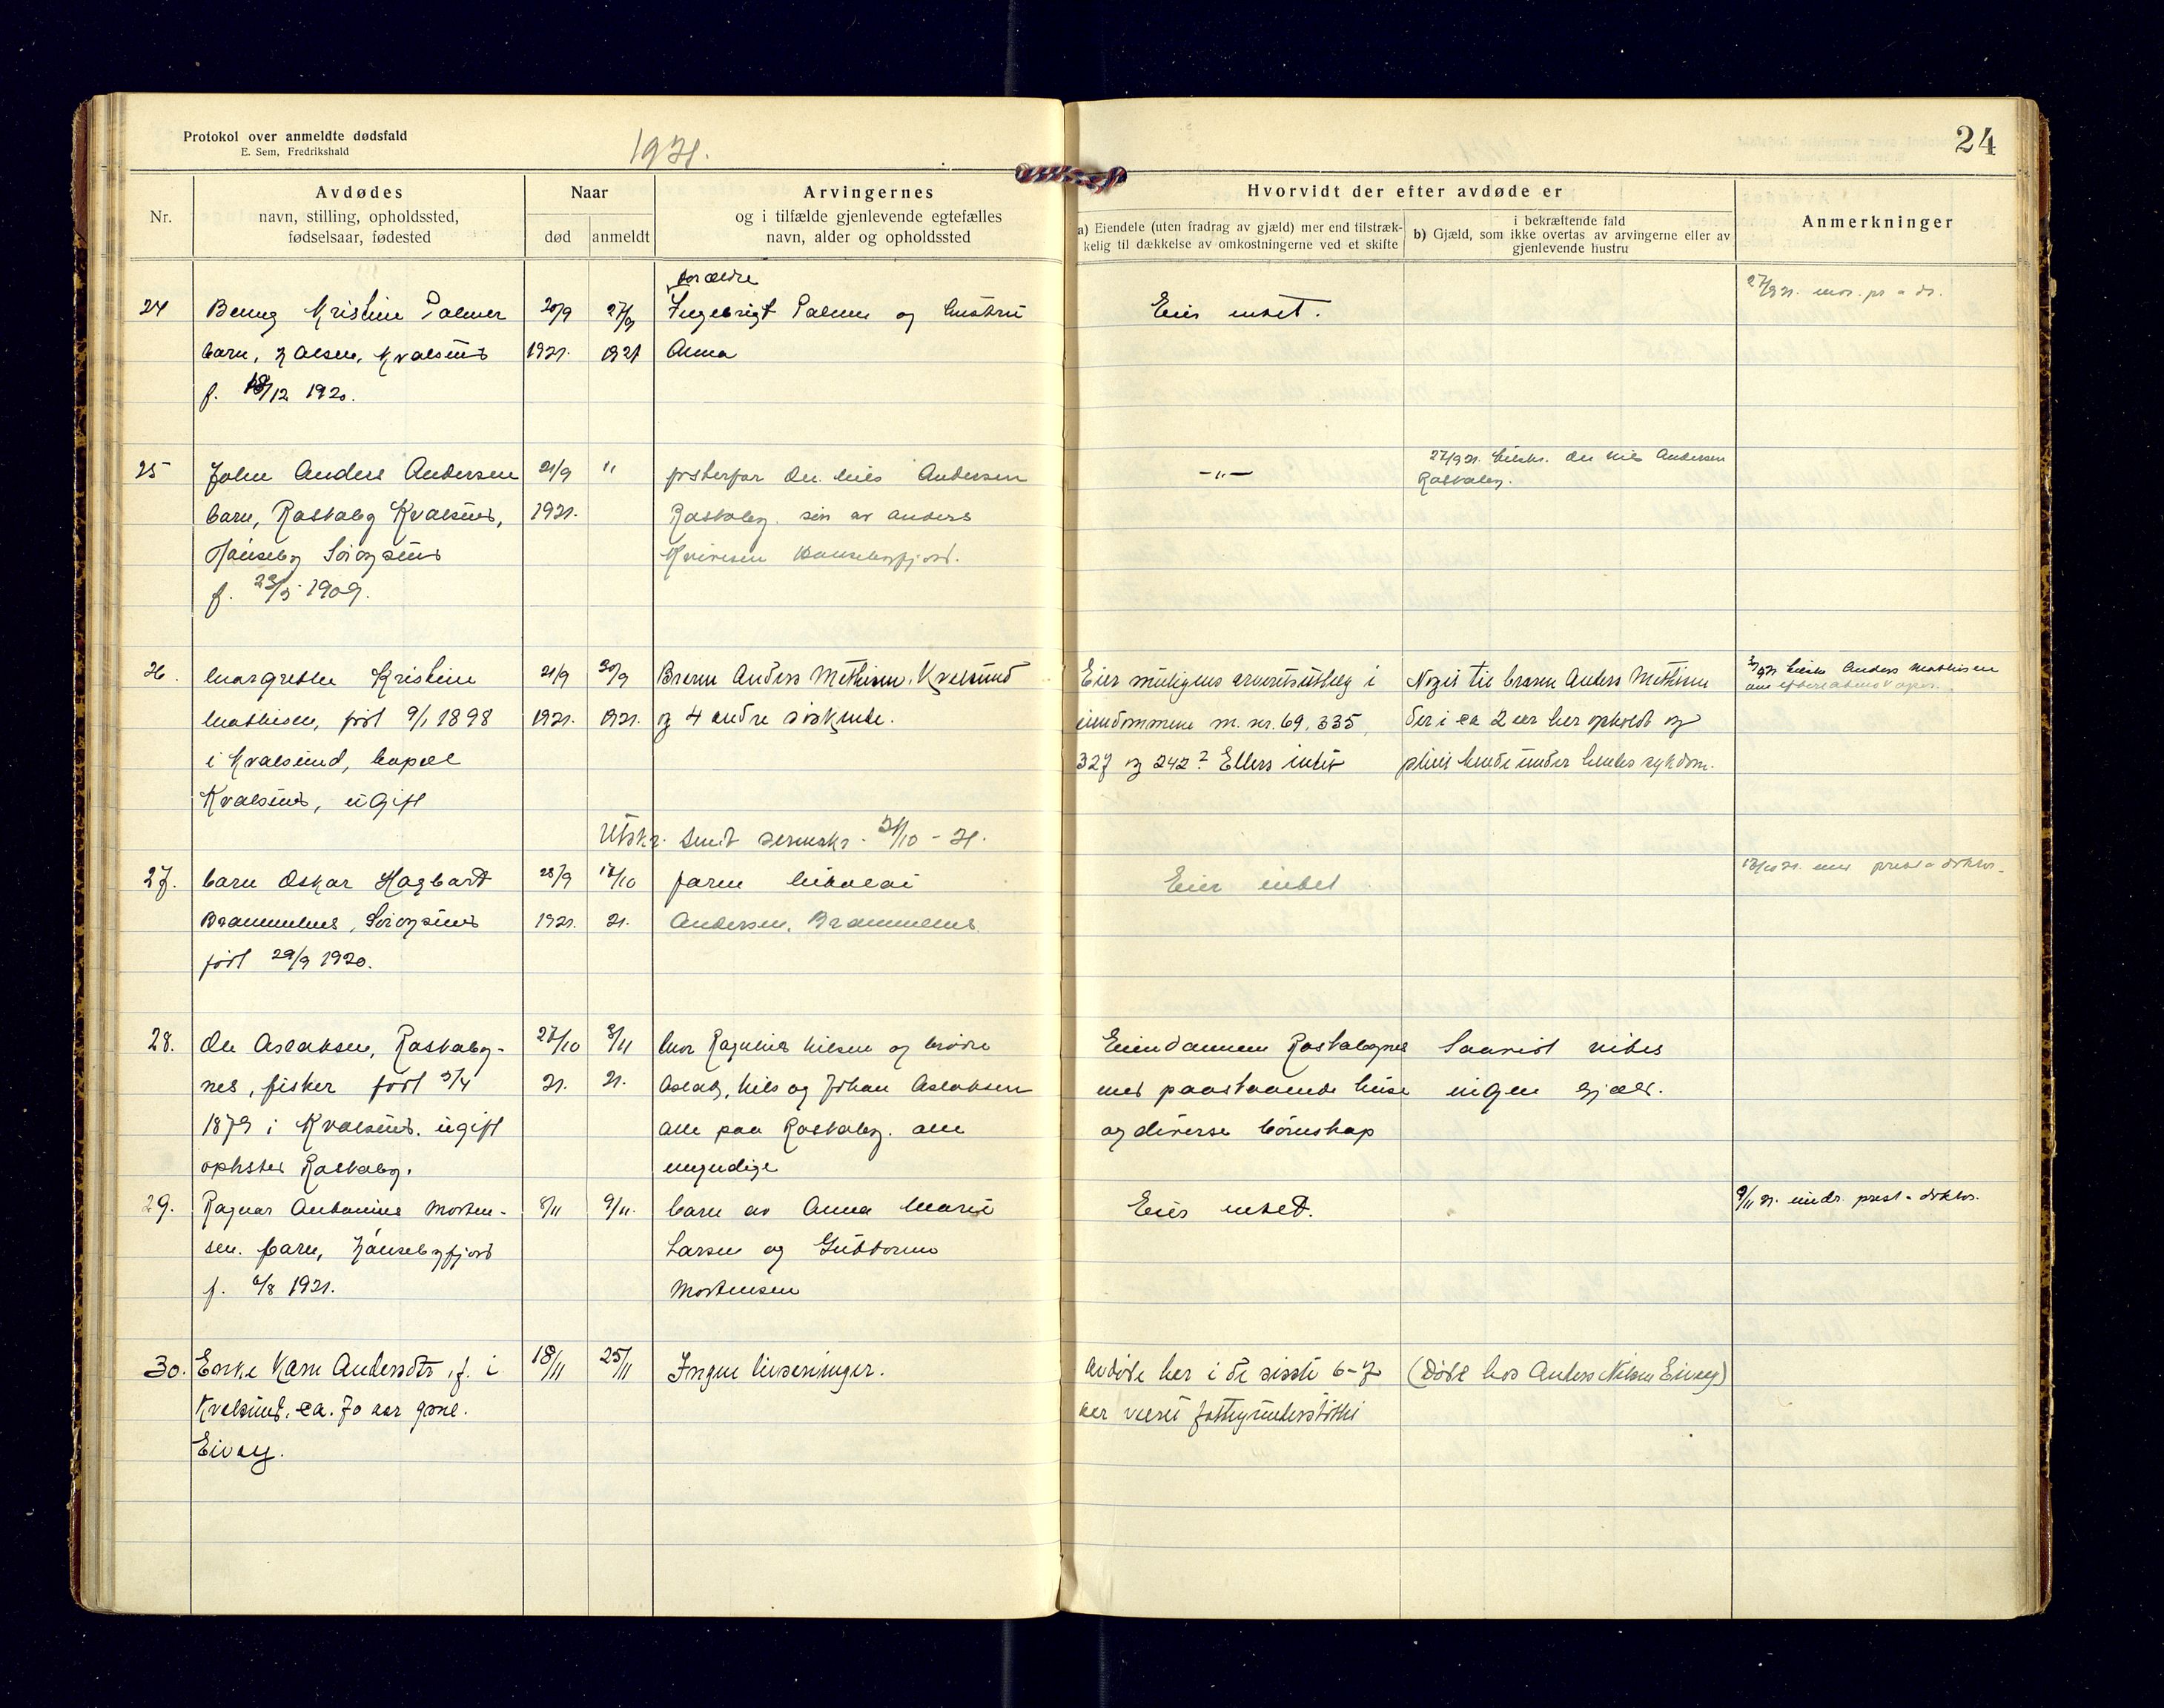 Protokol over anmeldte dødsfald
E. Sem, Fredrikshald
1921.
24
Nr.
Avdødes
navn, stilling, opholdssted,
fødselsaar, fødested
Naar
død
anmeldt
Arvingernes
og i tilfælde gjenlevende egtefælles
navn, alder og opholdssted
Hvorvidt der efter avdøde er
a) Eiendele (uten fradrag av gjæld) mer end tilstræk-
kelig til dækkelse av omkostningerne ved et skifte
i bekræftende fald
b) Gjæld, som ikke overtas av arvingerne eller av
gjenlevende hustru
Anmerkninger
24
Benny Kristine Palmer
barn, Kvalsund
f. 18/12 1920.
20/9
1921.
27/9
1921
forældre
Ingebrigt Palmer og hustru
Anna
Eier intet.
27/9 21.
25
John Anders Andersen
barn, Rastaby Kvalsund,
Sørøysund
f. 23/5 1909.
21/9
1921.
"
fosterfar Ole Nils Andersen
Rastaby. søn av Anders
-"-
27/9 21. Ole Nils Andersen
Rastaby.
26.
Margrethe Kristine
Mathisen, født 9/1 1898
i Kvalsund, bopæl
Kvalsund, ugift
21/9
1921.
30/9
1921.
Broren Anders Mathisen, Kvalsund
og 4 andre søskende.
Eier muligens arveretsutlæg i
eiendommene m. nr. 69, 335,
327 og 242? Ellers intet
Noget til broren Anders Mathisen
der i ca 2 aar har opholdt og
pleiet hende under hendes sykdom.
Anders Mathisen
Utskr. sendt 31/10 - 21.
27.
barn Oskar Hagbart
Brammenes, Sørøysund
født 29/9 1920.
28/9
1921.
12/10
21.
faren Nikolai
Andersen, Brammenes.
Eier intet
prest - doktor.
28.
Ole Aslaksen, Rastaby-
nes, fisker født 3/4
1879 i Kvalsund. ugift
opholdssted Rastaby.
27/10
21.
3/11
21.
mor Ragnhild Nilsen og brødre
Aslak, Nils og Johan Aslaksen
alle paa Rastaby. alle
myndige
Eiendommen Rastabynes
med paastaaende huse
og diverse bohaveskap
Saavidt vides
ingen gjæld.
29.
Ragnar Antonius Morten-
sen. barn,
f. 6/8 1921.
8/11
9/11.
barn av Anna Marie
Larsen og Guttorm
Mortensen
Eier intet.
9/11 21. prest - doktor.
30.
Enke Karn Andersdtr, f. i
Kvalsund. ca. 70 aar gml.
Eivag.
18/11
25/11
Ingen livsarvinger.
Avdøde har i de sidste 6-7
aar været fattigunderstøttet
(Døde hos Anders Nilsen Eivag)